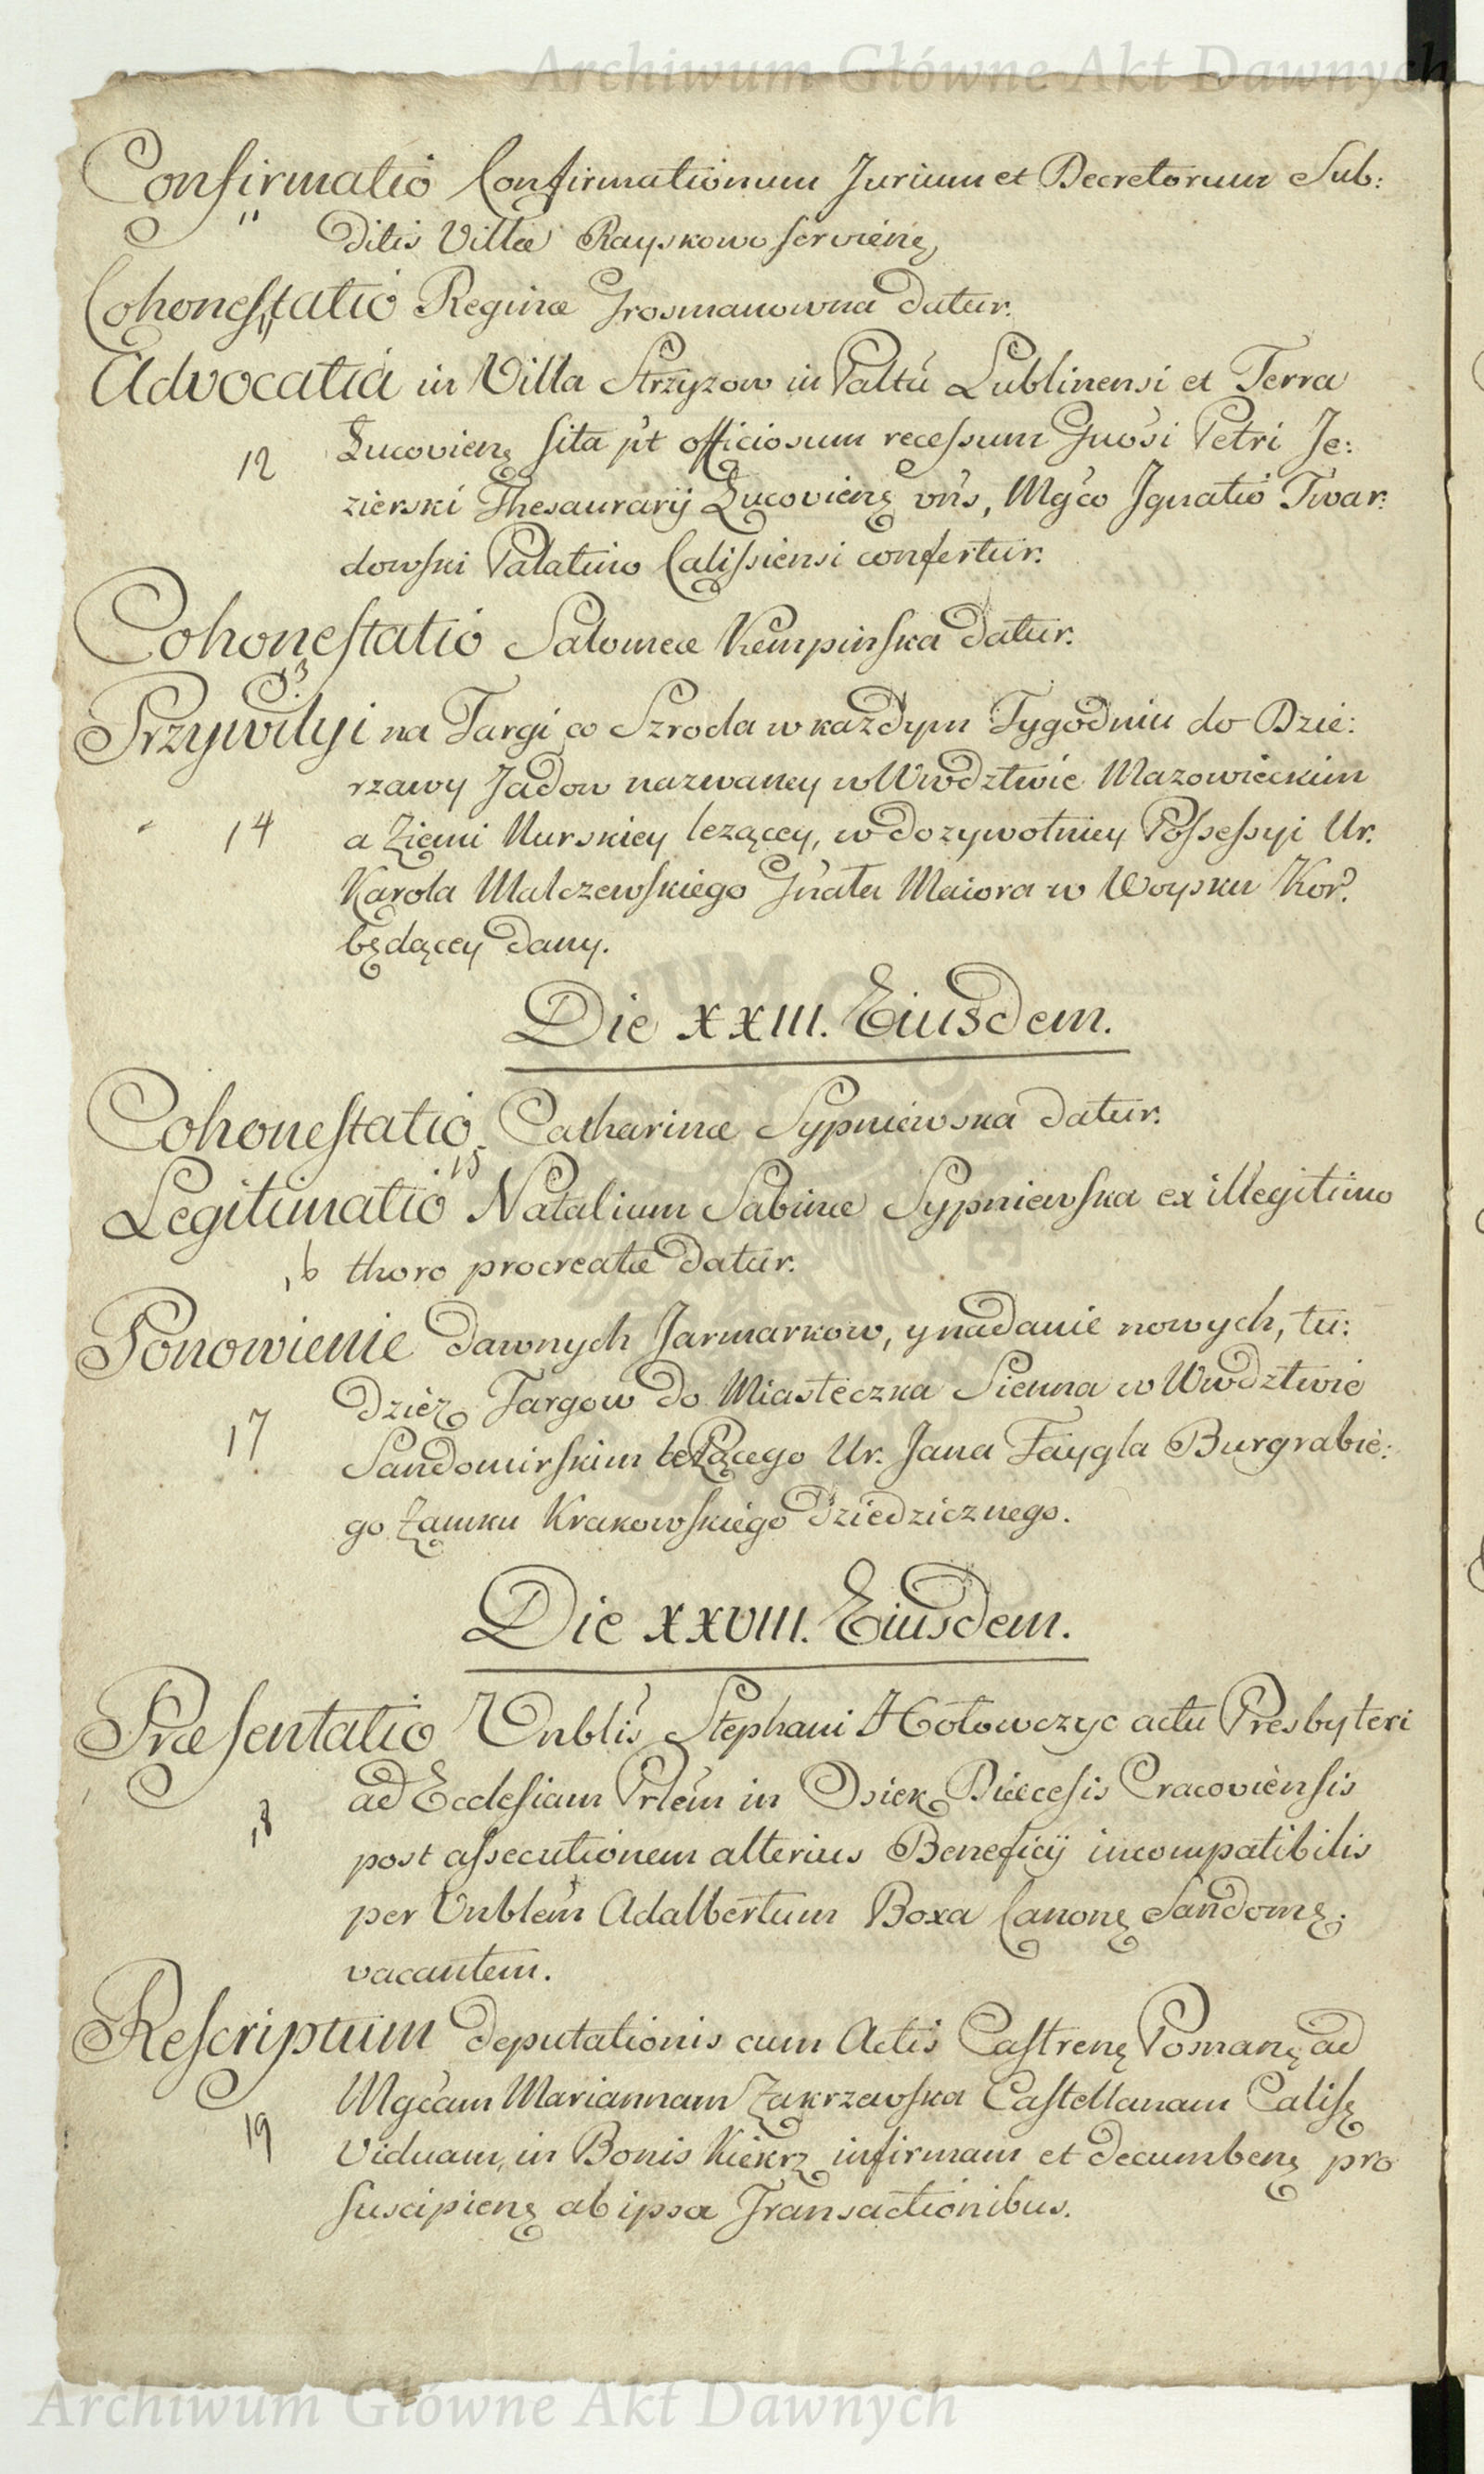 Archiwum Główne Akt Dawnych
Confirmatio Confirmationum Jurium et Decretorum Sub:
11 ditis Villæ Rayskowo servienę
Cohonestatio Reginæ Grosmanowna datur.
11
Advocatia in Villa Strzyzow in Paltu Lublinensi et Terra
12 Łucovienę sita pt officiosum recessum Gnosi Petri Je:
zierski Thesaurarij Łucovienę vns, Mgco Ignatio Twar:
dowski Palatino Calissiensi confertur.
Cohonestatio Salomeæ Kempinska datur.
13
Przywilyi na Targi co Szroda w kazdym Tygodniu do Dzie:
rzawy Jadow nazwaney w Wwdztwie Mazowieckim
14 a Ziemi Nurskiey lezącey, w dozywotniey Possessyi Ur.
Karola Malczewskiego Gnała Maiora w Woysku Kor?
będącey dany.
Die XXIII. Eiusdem.
Cohonestatio Catharinæ Sypniewska datur.
15
Legitimatio Natalium Sabinæ Sypniewska ex illegitimo
16 thoro procreatæ datur.
Ponowienie dawnych Jarmarkow, y nadanie nowych, tu:
dziez Targow do Miasteczka Sienna w Wwdztwie
17 Sandomirskim leżącego Ur. Jana Faygla Burgrabie:
go Zamku Krakowskiego Dziedzicznego.
Die XXVIII. Eiusdem.
Præsentatio Vnblis Stephani Hołowczyc actu Presbyteri
ad Ecclesiam Prlem in Osiek Diæcesis Cracoviensis
18 post assecutionem alterius Beneficij incompatibilis
per Vnblem Adalbertum Boxa Canonę Sandomę.
vacantem.
Rescriptum deputationis cum Actis Castrenę Posnanę ad
Mgcam Mariannam Zakrzewska Castellanam Calisę
19 Viduam, in Bonis Kiekrz infirmam et decumbenę pro
suscipienę ab ipsa Transactionibus.
Archiwum Główne Akt Dawnych